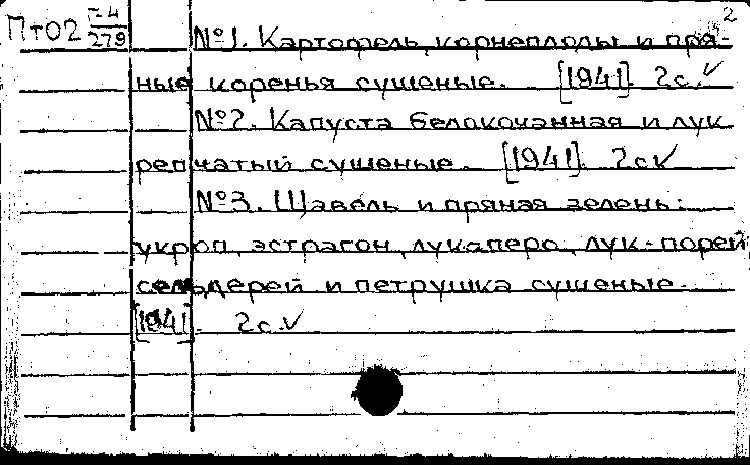 2
Пт02 Г-4/279 №1. Картофель, корнеплоды и пря-
ные коренья сушеные. [1941]. 2с.✓
№2. Капуста белокочанная и лук
репчатый сушеные. [1941]. 2с✓
№3. Щавель и пряная зелень:
укроп, эстрагон, лук-перо, лук-порей
сельдерей и петрушка сушеные.
[1941]. 2с.✓